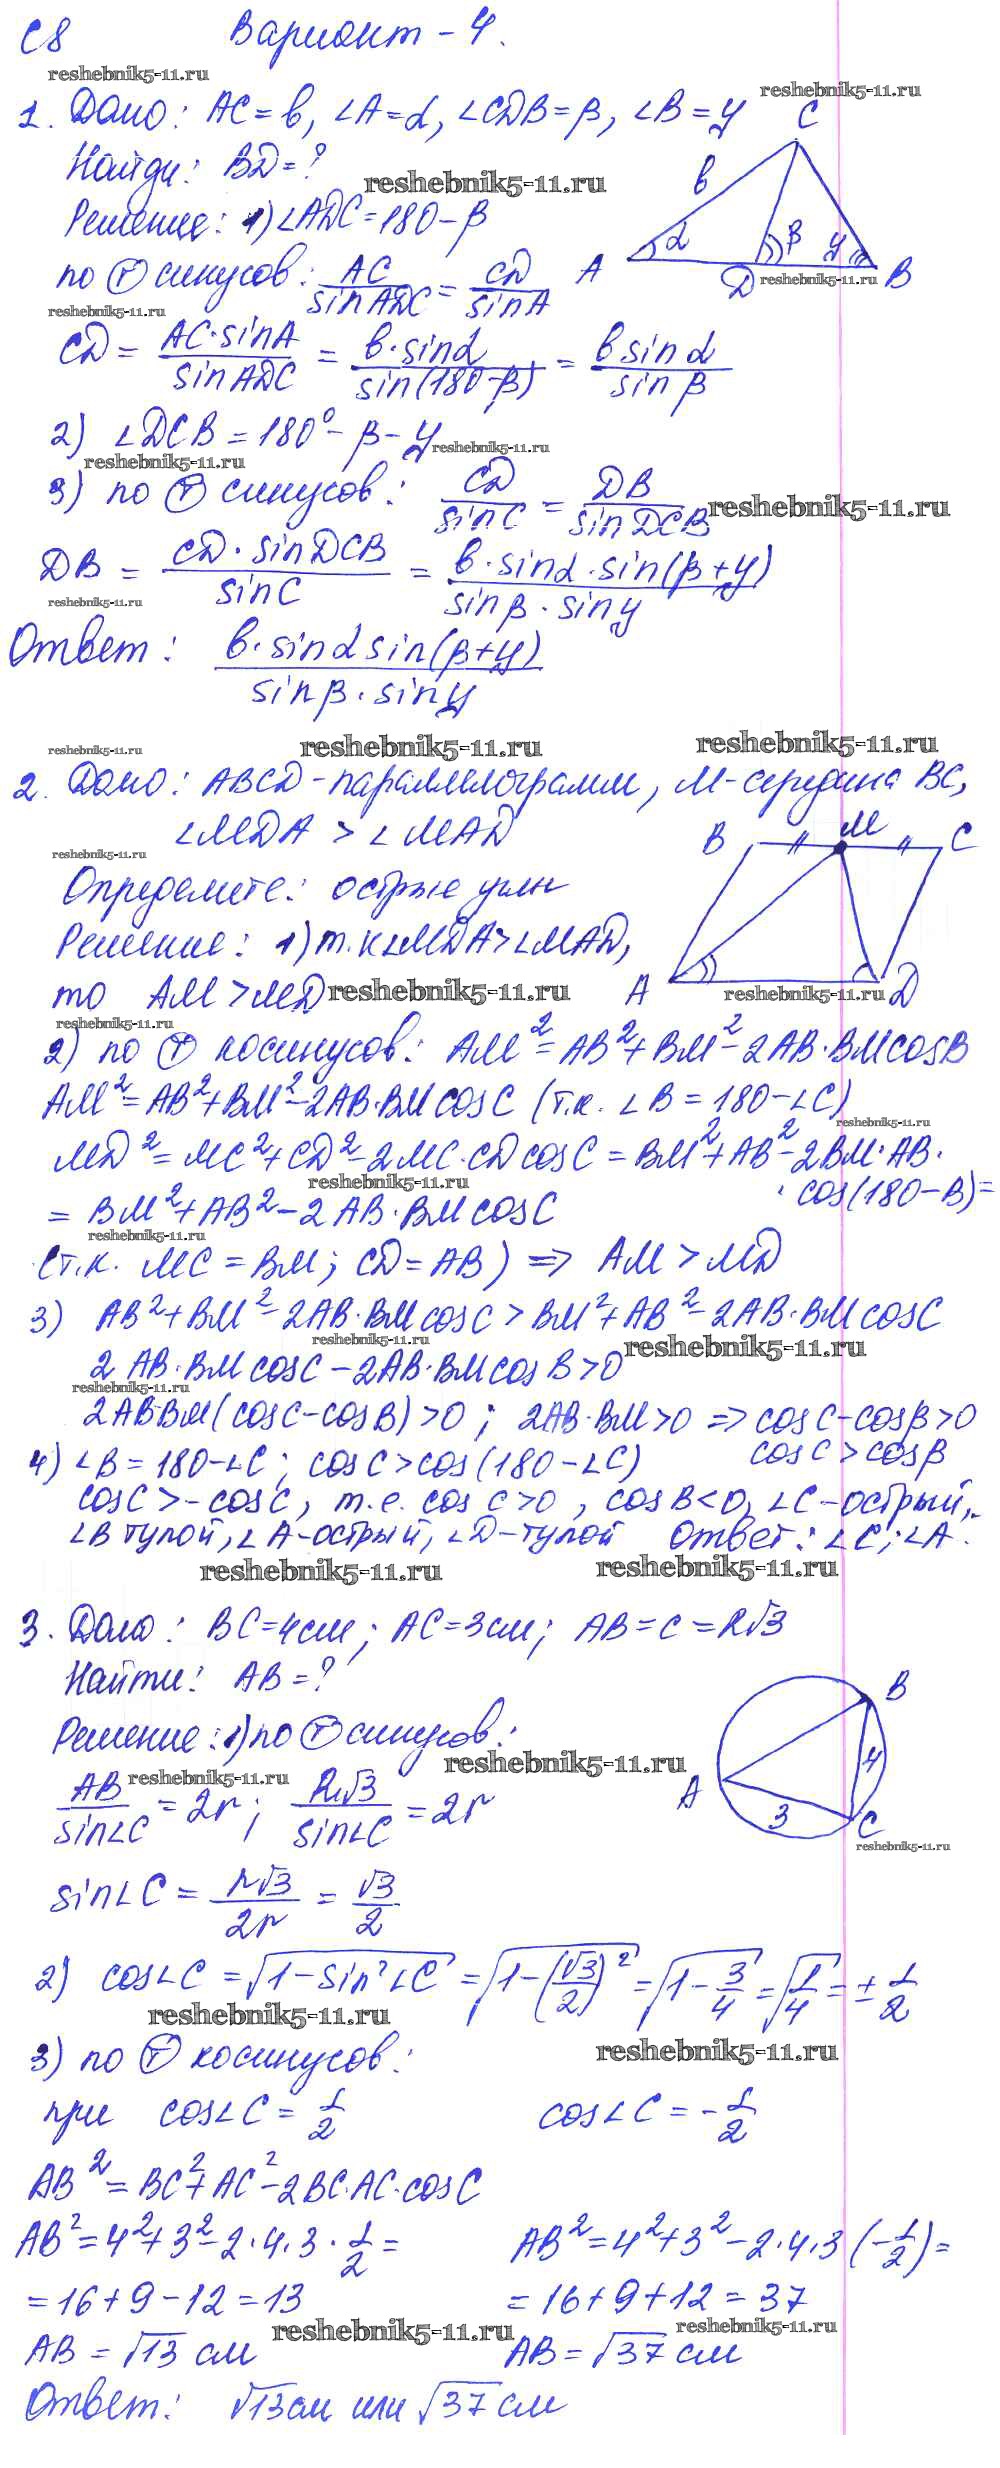 С8 Вариант - 4.
1. Дано: AC = b, ∠A = α, ∠CDB = β, ∠B = γ
Найди: BD = ?
Решение: 1) ∠ADC = 180 - β
по Ⓣ синусов: AC/sin ADC = CD/sin A
CD = AC·sin A/sin ADC = b·sin α/sin(180-β) = b sin α/sin β
2) ∠DCB = 180° - β - γ
3) по Ⓣ синусов: CD/sin C = DB/sin DCB
DB = CD·sin DCB/sin C = b·sin α·sin(β+γ)/sin β·sin γ
Ответ: b·sin α sin(β+γ)/sin β·sin γ
C
b
α
β
γ
A
D
B
2. Дано: ABCD - параллелограмм, M - середина BC,
∠MDA > ∠MAD
Определите: острые углы
Решение: 1) т.к ∠MDA > ∠MAD,
то AM > MD
B
M
C
A
D
2) по Ⓣ косинусов: AM² = AB² + BM² - 2AB·BM cos B
AM² = AB² + BM² - 2AB·BM cos C (т.к. ∠B = 180 - ∠C)
MD² = MC² + CD² - 2MC·CD cos C = BM² + AB² - 2BM·AB·
· cos(180 - B) =
= BM² + AB² - 2AB·BM cos C
(т.к. MC = BM; CD = AB) => AM > MD
3) AB² + BM² - 2AB·BM cos C > BM² + AB² - 2AB·BM cos C
2 AB·BM cos C - 2AB·BM cos B > 0
2AB·BM(cos C - cos B) > 0; 2AB·BM > 0 => cos C - cos β > 0
cos C > cos β
4) ∠B = 180 - ∠C; cos C > cos(180 - ∠C)
cos C > - cos C, т.е. cos C > 0, cos B < 0, ∠C - острый,
∠B тупой, ∠A - острый, ∠D - тупой Ответ: ∠C; ∠A.
3. Дано: BC = 4см; AC = 3см; AB = c = R√3
Найти: AB = ?
Решение: 1) по Ⓣ синусов:
AB/sin∠C = 2r; R√3/sin∠C = 2r
B
A
4
3
C
sin∠C = r√3/2r = √3/2
2) cos∠C = √(1 - sin²∠C) = √(1 - (√3/2)²) = √(1 - 3/4) = √(1/4) = ± 1/2
3) по Ⓣ косинусов:
при cos∠C = 1/2 cos∠C = - 1/2
AB² = BC² + AC² - 2BC·AC·cos C
AB² = 4² + 3² - 2·4·3·1/2 = AB² = 4² + 3² - 2·4·3(-1/2) =
= 16 + 9 - 12 = 13 = 16 + 9 + 12 = 37
AB = √13 см AB = √37 см
Ответ: √13 см или √37 см
reshebnik5-11.ru